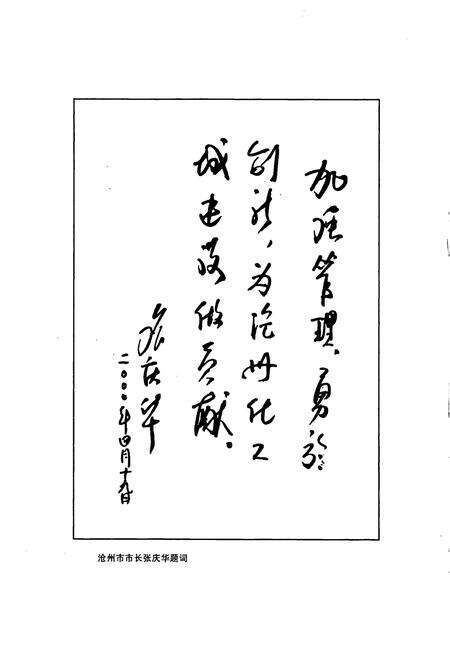 加强管理，勇于
创新，为沧州化工
城建设做贡献。
张庆华
二〇〇〇年四月十九日
沧州市市长张庆华题词